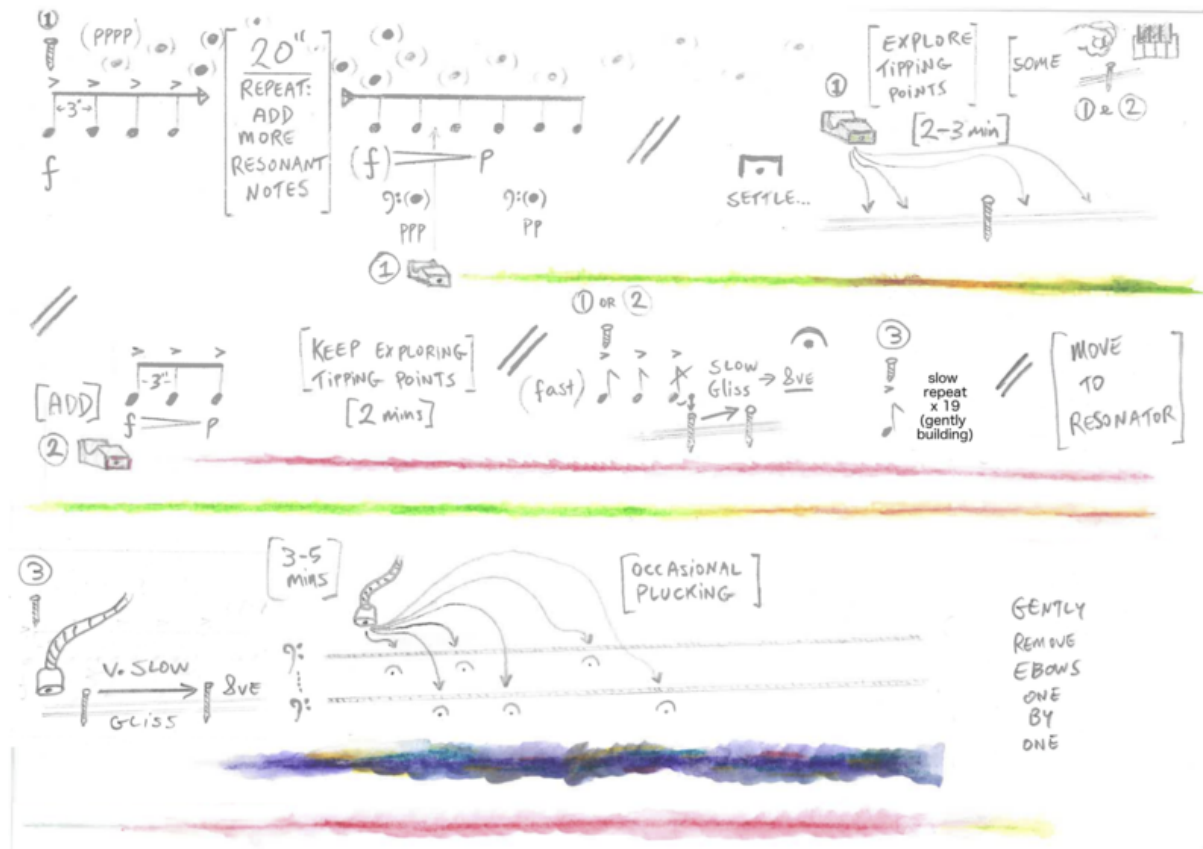 ①
(PPPP)
3"
f
20"
REPEAT:
ADD
MORE
RESONANT
NOTES
(f) P
PPP
PP
①
SETTLE...
①
EXPLORE
TIPPING
POINTS
[2-3 min]
SOME
① e ②
[ADD]
3"
f P
②
[KEEP EXPLORING
TIPPING POINTS
[2 mins]
① OR ②
(fast)
SLOW
Gliss → 8VE
③
slow
repeat
x 19
(gently
building)
MOVE
TO
RESONATOR
③
V. SLOW
GLISS
8VE
[3-5
mins]
[OCCASIONAL
PLUCKING]
GENTLY
REMOVE
EBOWS
ONE
BY
ONE